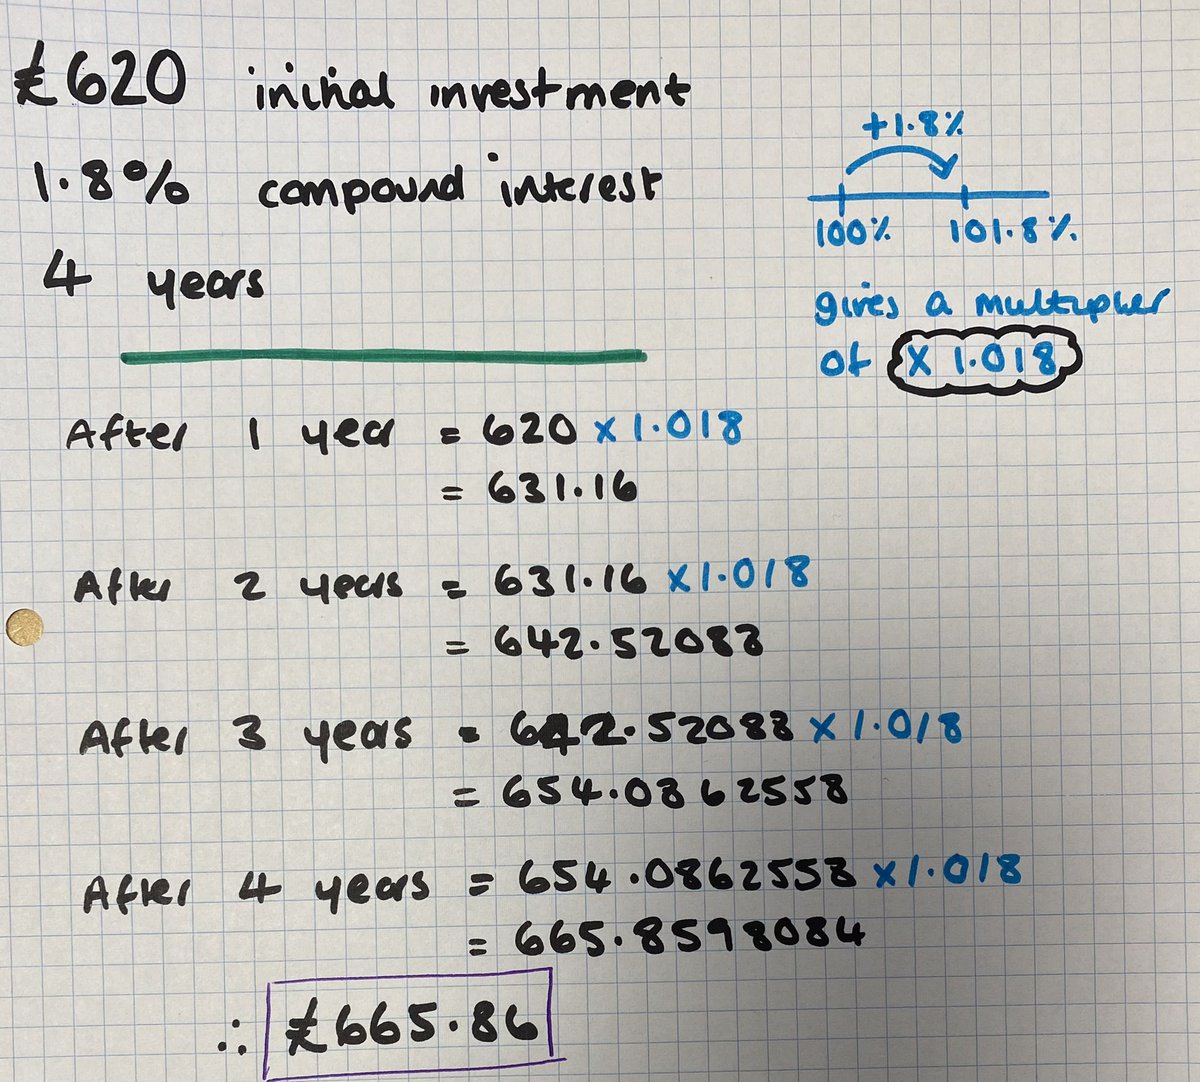 £620 initial investment
1.8% compound interest
4 years
+1.8%
100% 101.8%
gives a multiplier
of × 1.018
After 1 year = 620 × 1.018
= 631.16
After 2 years = 631.16 × 1.018
= 642.52088
After 3 years = 642.52088 × 1.018
= 654.0862558
After 4 years = 654.0862558 × 1.018
= 665.8598084
∴ £665.86